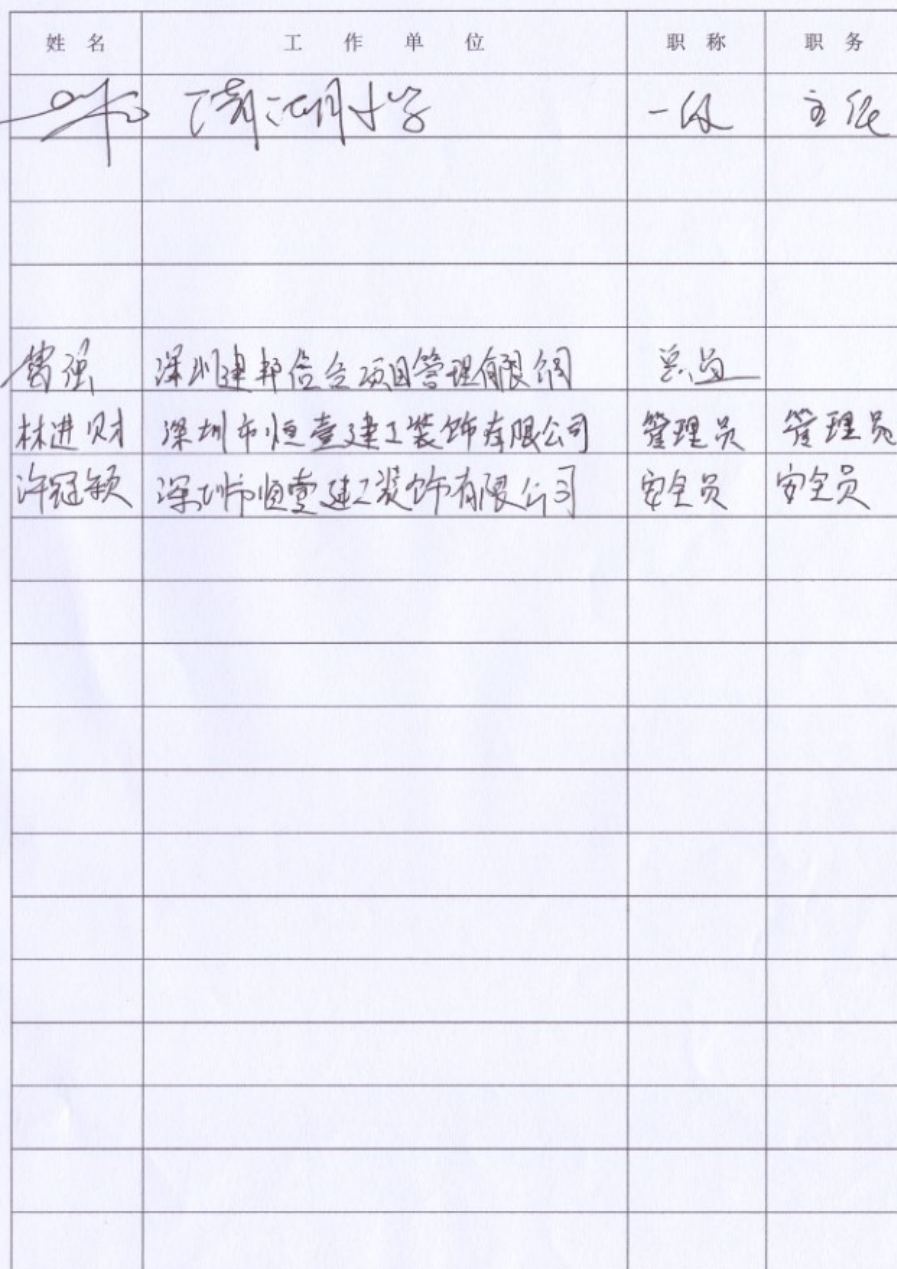 姓名 工作单位 职称 职务
清湖小学 一级 主任
曾强 深圳建邦信合项目管理有限公司 总监
林进财 深圳市恒壹建工装饰有限公司 管理员 管理员
许冠颖 深圳市恒壹建工装饰有限公司 安全员 安全员